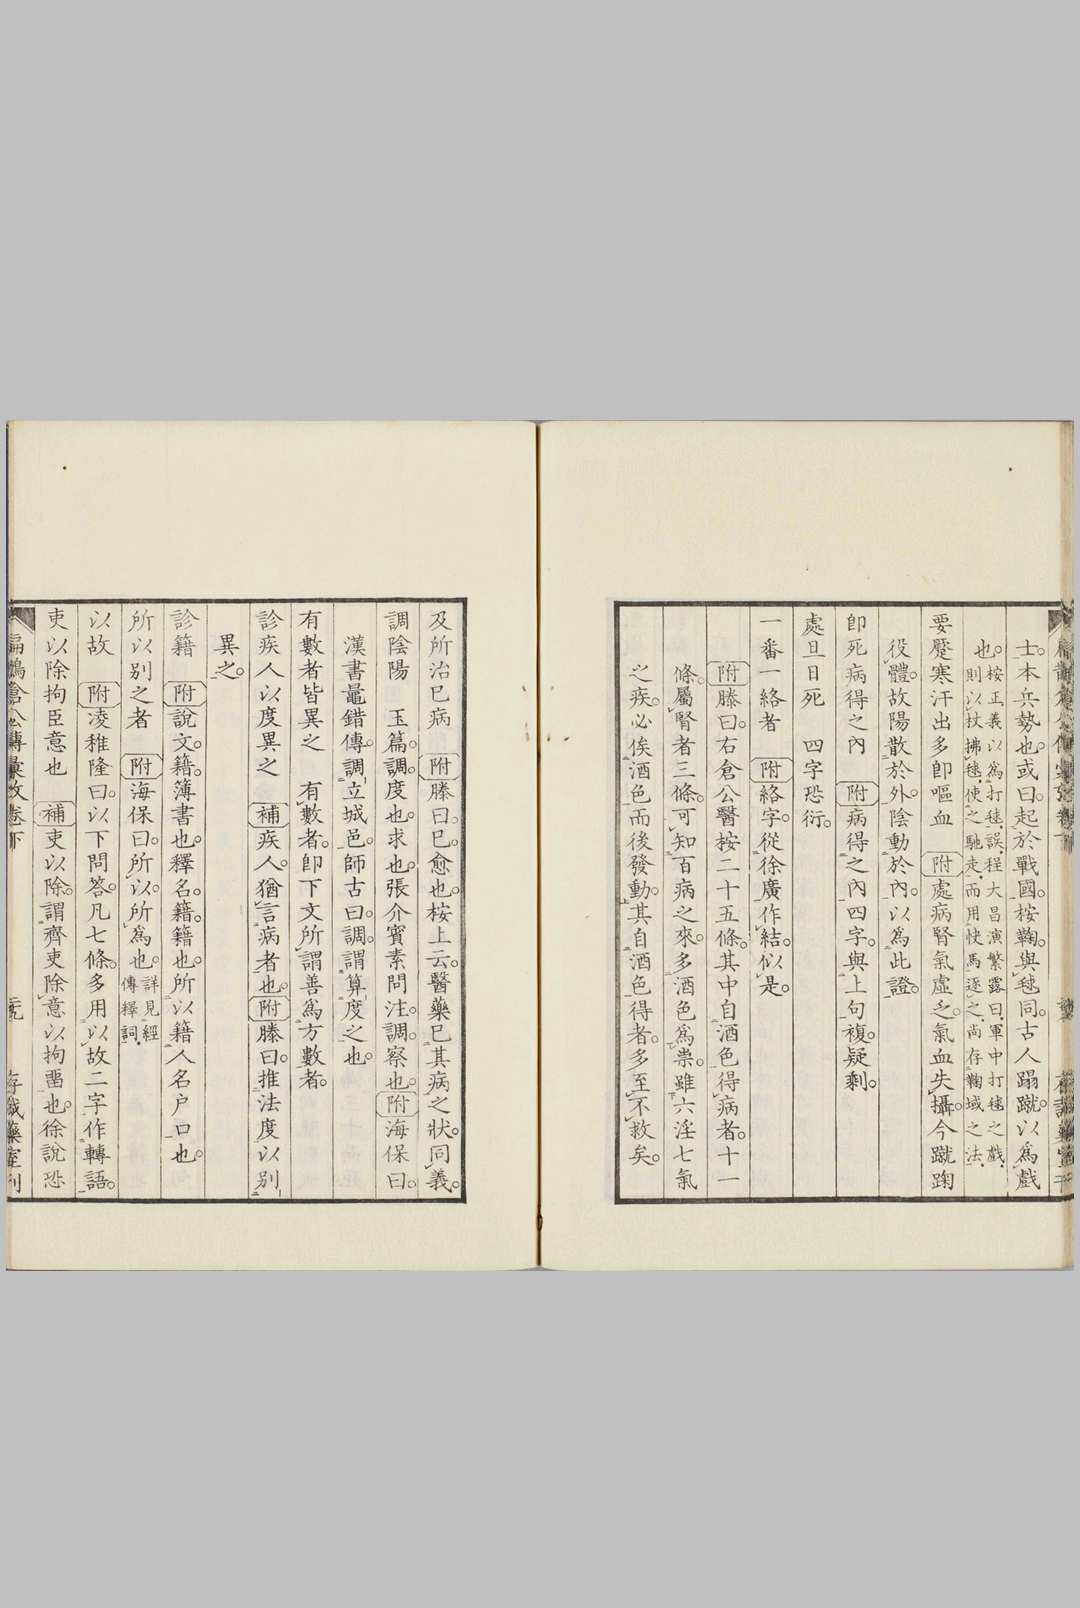 士。本兵勢也。或曰。起於戰國。桉鞠與毬同。古人蹋蹴以爲戲
也。桉正義以爲打毬。誤。程大昌演繁露曰。軍中打毬之戲。
則以杖拂毬。使之馳走。而用快馬逐之。尚存鞠域之法。
要蹷寒汗出多即嘔血 附處病腎氣虛乏。氣血失攝。今蹴踘
役體。故陽散於外。陰動於內。以爲此證。
卽死病得之內 附病得之內四字。與上句複。疑剩。
處旦日死 四字恐衍。
一番一絡者 附絡字。從徐廣作結。似是。
附滕曰。右倉公醫桉二十五條。其中自酒色得病者。十一
條。屬腎者三條。可知百病之來。多酒色爲祟。雖六淫七氣
之疾。必俟酒色而後發動。其自酒色得者。多至不救矣。
及所治已病 附滕曰。已。愈也。桉上云。醫藥已其病之狀。同義。
調陰陽 玉篇。調。度也。求也。張介賓素問注。調。察也。附海保曰。
漢書鼂錯傳。調立城邑。師古曰。調。謂算度之也。
有數者皆異之 有數者。卽下文所謂善爲方數者。
診疾人以度異之 補疾人。猶言病者也。附滕曰。推法度以別
異之。
診籍 附說文。籍。簿書也。釋名。籍。籍也。所以籍人名戶口也。
所以別之者 附海保曰。所以。所爲也。詳見經
傳釋詞。
以故 附凌稚隆曰。以下問答。凡七條。多用以故二字作轉語。
吏以除拘臣意也 補吏以除。謂齊吏除意以拘畱也。徐說恐
扁鵲倉公傳彙攷卷下 存誠藥室刊